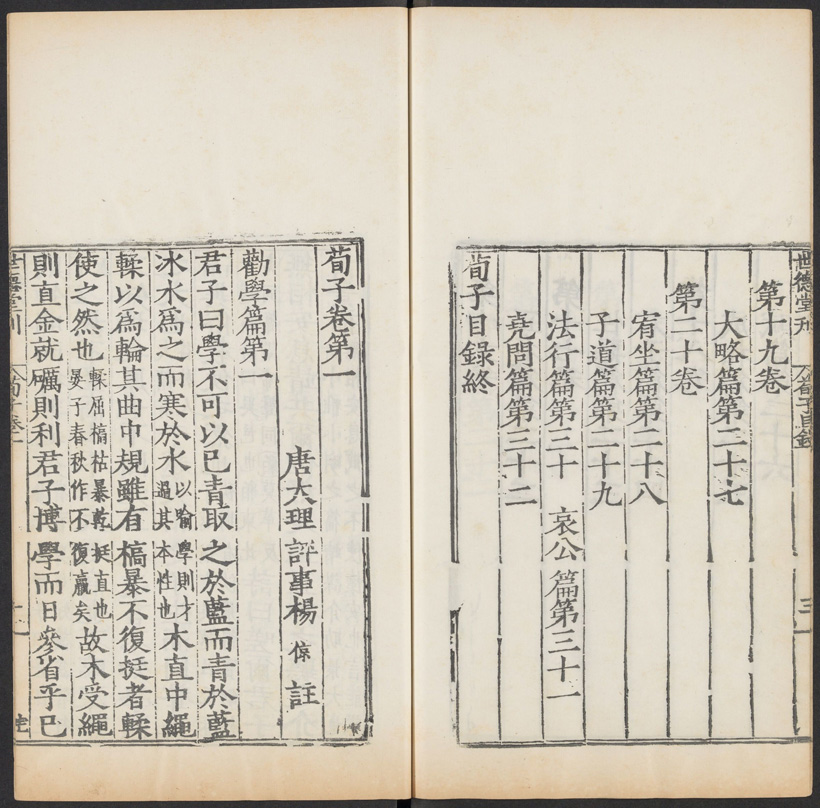 世德堂刊
荀子目錄
三
第十九卷
大略篇第二十七
第二十卷
宥坐篇第二十八
子道篇第二十九
法行篇第三十 哀公篇第三十一
堯問篇第三十二
荀子目錄終
荀子卷第一
唐大理評事楊 倞 註
勸學篇第一
君子曰學不可以已青取之於藍而青於藍
冰水爲之而寒於水以喻學則才過其本性也木直中繩
輮以爲輪其曲中規雖有槁暴不復挺者輮
使之然也輮屈槁枯暴乾挺直也晏子春秋作不復贏矣故木受繩
則直金就礪則利君子博學而日參省乎已
世德堂刊
荀子卷一